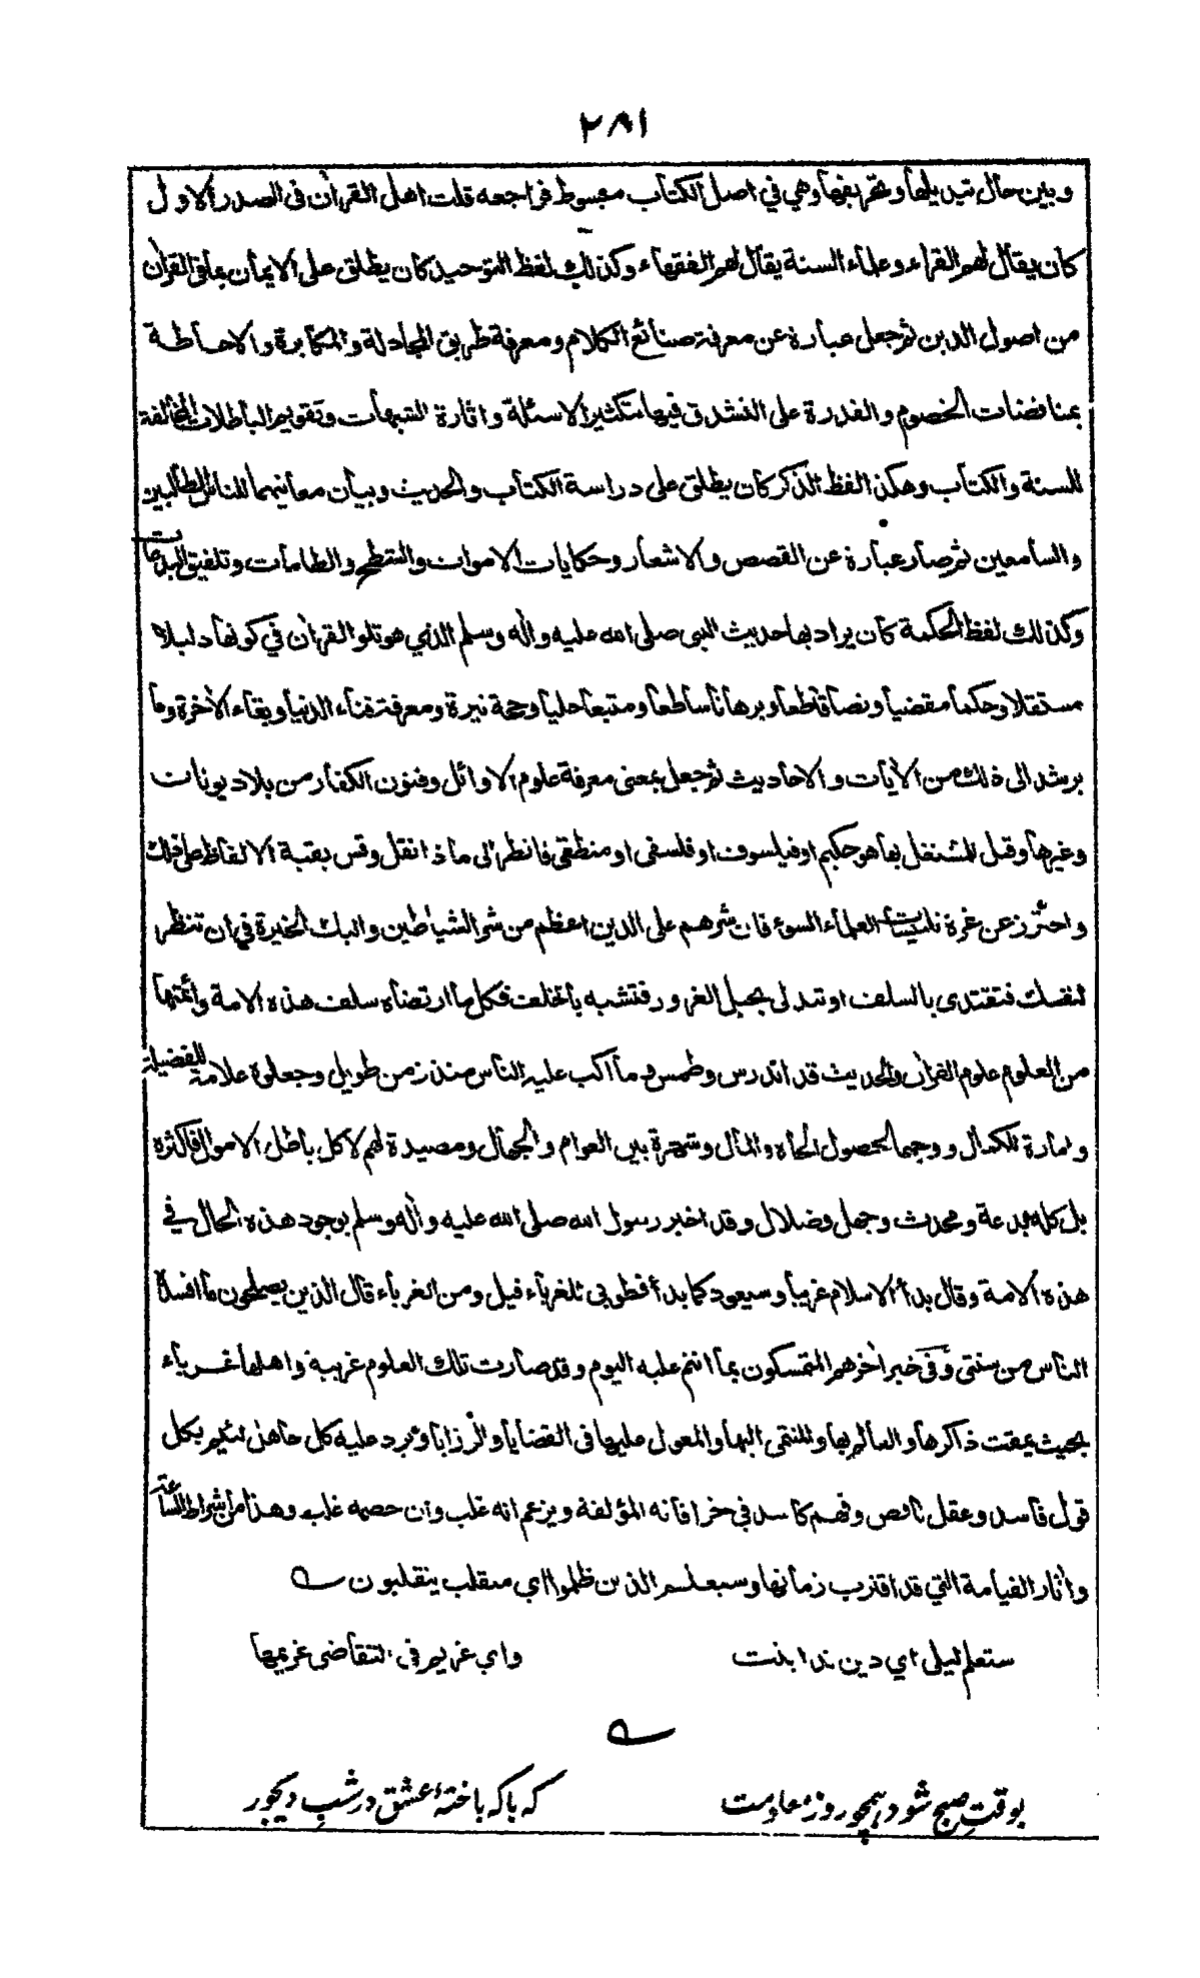 ٢٨١
وبين حال تبديلها وتحريفها وهي في اصل الكتاب مبسوط فراجعه قلت اهل القرآن فى الصدر الاول
كان يقال لهم القراء وعلماء السنة يقال لهم الفقهاء وكذلك لفظ التوحيد كان يطلق على الايمان بما فى القرآن
من اصول الدين ثم جعل عبارة عن معرفة صنائع الكلام ومعرفة طريق المجادلة والمكابرة والاحاطة
بمناقضات الخصوم والقدرة على التشدق فيها بتكثير الاسئلة واثارة الشبهات وتقويم الباطلات المخالفة
للسنة والكتاب وهكذا لفظ الذكر كان يطلق على دراسة الكتاب والحديث وبيان معانيهما للناس الطالبين
والسامعين ثم صار عبارة عن القصص والاشعار وحكايات الاموات والشطح والطامات وتلفيق البدعات
وكذلك لفظ الحكمة كان يراد بها حديث النبى صلى الله عليه واٰله وسلم الذي هو تلو القراٰن في كونها دليلا
مستقلا وحكما مقضيا ونصا قاطعا وبرهانا ساطعا ومتبعا جليا وحجة نيرة ومعرفة فناء الدنيا وبقاء الاٰخرة وما
يرشد الى ذلك من الاٰيات والاحاديث ثم جعل بمعنى معرفة علوم الاوائل وفنون الكفار من بلاد يونان
وغيرها وقيل للمشتغل بها هو حكيم او فيلسوف او فلسفى او منطقى فانظر الى ماذا نقل وقس بقية الالفاظ على ذلك
واحترز عن غرة تلبيسات العلماء السوء فان شرهم على الدين اعظم من شر الشياطين واليك الخيرة في ان تنظر
لنفسك فتقتدى بالسلف او تتدلى بحبل الغرور فتتشبه بالخلف فكل ما ارتضاه سلف هذه الامة وائمتها
من العلوم علوم القراٰن والحديث قد اندرس وطمس وما اكب عليه الناس منذ زمن طويل وجعلوه علامة للفضيلة
وامارة للكمال ووجها لحصول الجاه والمال وشهرة بين العوام والجهال ومصيدة لهم لاكل باطل الاموال فاكثره
بل كله بدعة ومحدث وجهل وضلال وقد اخبر رسول الله صلى الله عليه واٰله وسلم بوجود هذه الحال في
هذه الامة وقال بدأ الاسلام غريبا وسيعود كما بدأ فطوبى للغرباء قيل ومن الغرباء قال الذين يصلحون ما افسده
الناس من سنتى وفى خبر اٰخر هم المتمسكون بما انتم عليه اليوم وقد صارت تلك العلوم غريبة واهلها غرباء
بحيث يمقت ذاكرها والعالم بها والمنتمى اليها والمعول عليها فى القضايا والرزايا ويرد عليه كل جاهل لئيم بكل
قول فاسد وعقل ناقص وفهم كاسد في خرافاته المؤلفة ويزعم انه غلب وان خصمه غلب وهذا من اشراط الساعة
واٰثار القيامة التي قد اقترب زمانها وسيعلم الذين ظلموا اي منقلب ينقلبون
ستعلم ليلى اي دين تداينت واي غريم في التقاضى غريمها
بوقتِ صبح شود ہمچو روز معلومت که با که باختۂ عشق در شبِ دیجور